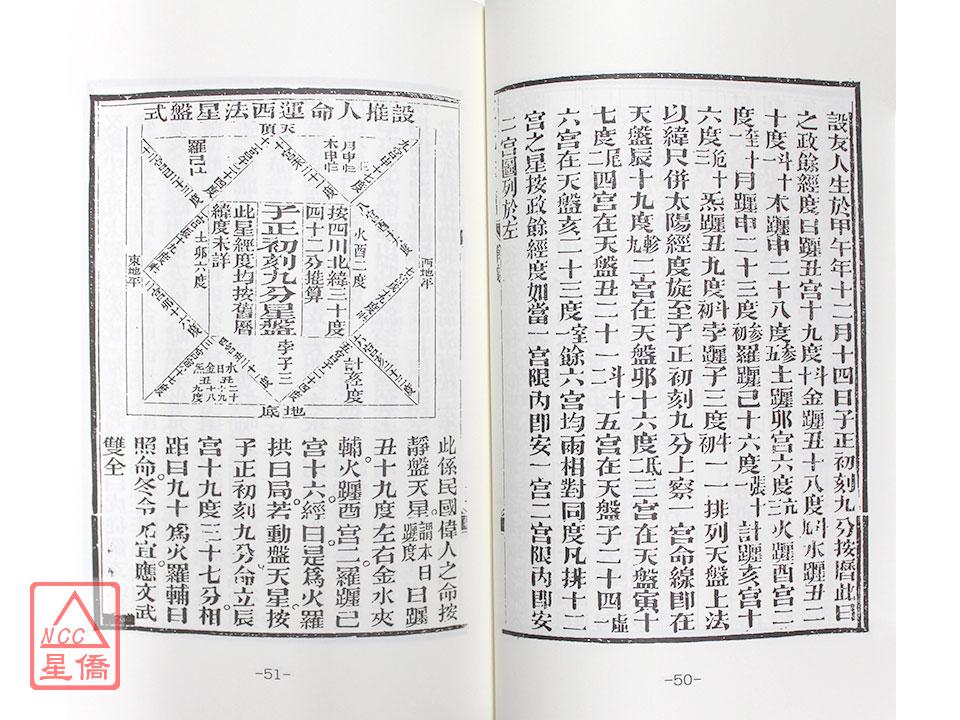 設友人生於甲午年十二月十四日子正初刻九分按曆此日
之政餘經度日躔丑宮十九度斗十金躔丑十八度斗水躔丑二
十度斗十一木躔申二十八度參五土躔卯宮六度亢火躔酉宮二
度奎十月躔申二十三度參初羅躔己十六度張十一計躔亥宮十
六度危十三炁躔丑九度斗初孛躔子三度牛初一一排列天盤上法
以緯尺併太陽經度旋至子正初刻九分上察一宮命線卽在
天盤辰十九度軫二宮在天盤卯十六度氐二三宮在天盤寅十
七度尾二四宮在天盤丑二十一斗十五五宮在天盤子二十四虛一
六宮在天盤亥二十三度室一餘六宮均兩相對同度凡排十二
宮之星按政餘經度如當一宮限內卽安一宮二宮限內卽安
二宮圖列於左
-50-
設推人命運西法星盤式
天頂
月申
木申
羅己
火酉二度
西地平
東地平
按四川北緯三十度
四十二分推算
子正初刻九分星盤
此星經度均按舊曆
緯度未詳
土卯六度
孛子三
計亥度
水日金炁
丑丑
二十
十九
十八
九度
地底
此係民國偉人之命按
靜盤天星謂本日日躔度
丑十九度左右金水夾
輔火躔酉宮二羅躔己
宮十六經日是爲火羅
拱日局若動盤天星按
子正初刻九分命立辰
宮十九度三十七分相
距日九十爲火羅輔日
照命冬令尤宜應文武
雙全
-51-
NCC
星僑